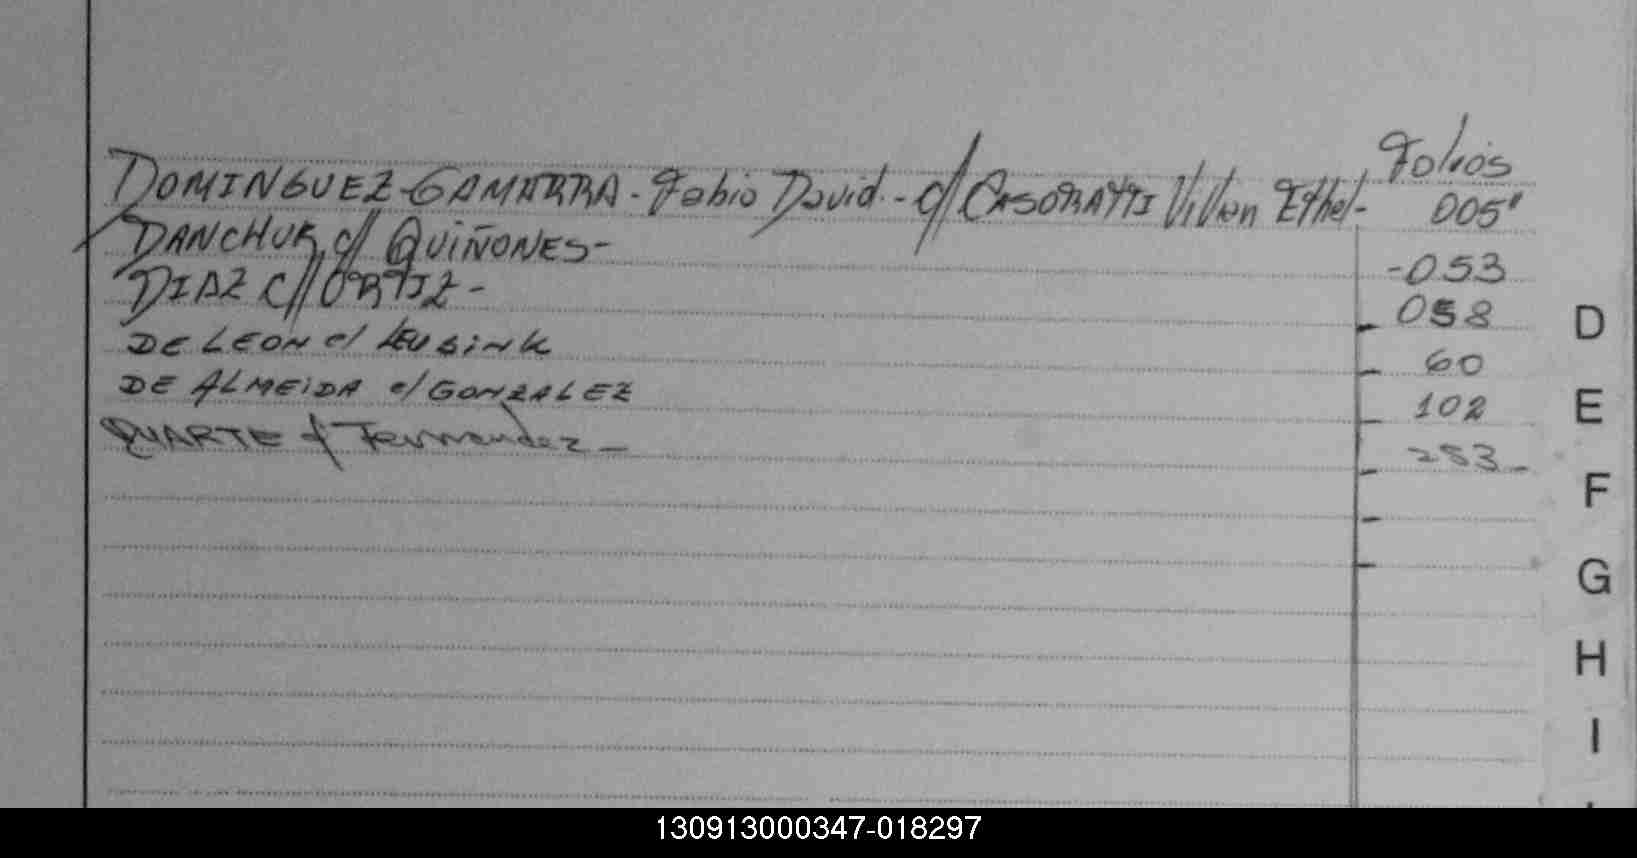 Folios
DOMINGUEZ-GAMARRA - Fabio David.- c/ CASORATTI Vivian Ethel- 005'
DANCHUK c/ QUIÑONES- -053
DIAZ C/ ORTIZ - 058
DE LEON c/ LEUSINK 60
DE ALMEIDA c/ GONZALEZ 102
DUARTE c/ Fernandez - 283-
D
E
F
G
H
I
130913000347-018297